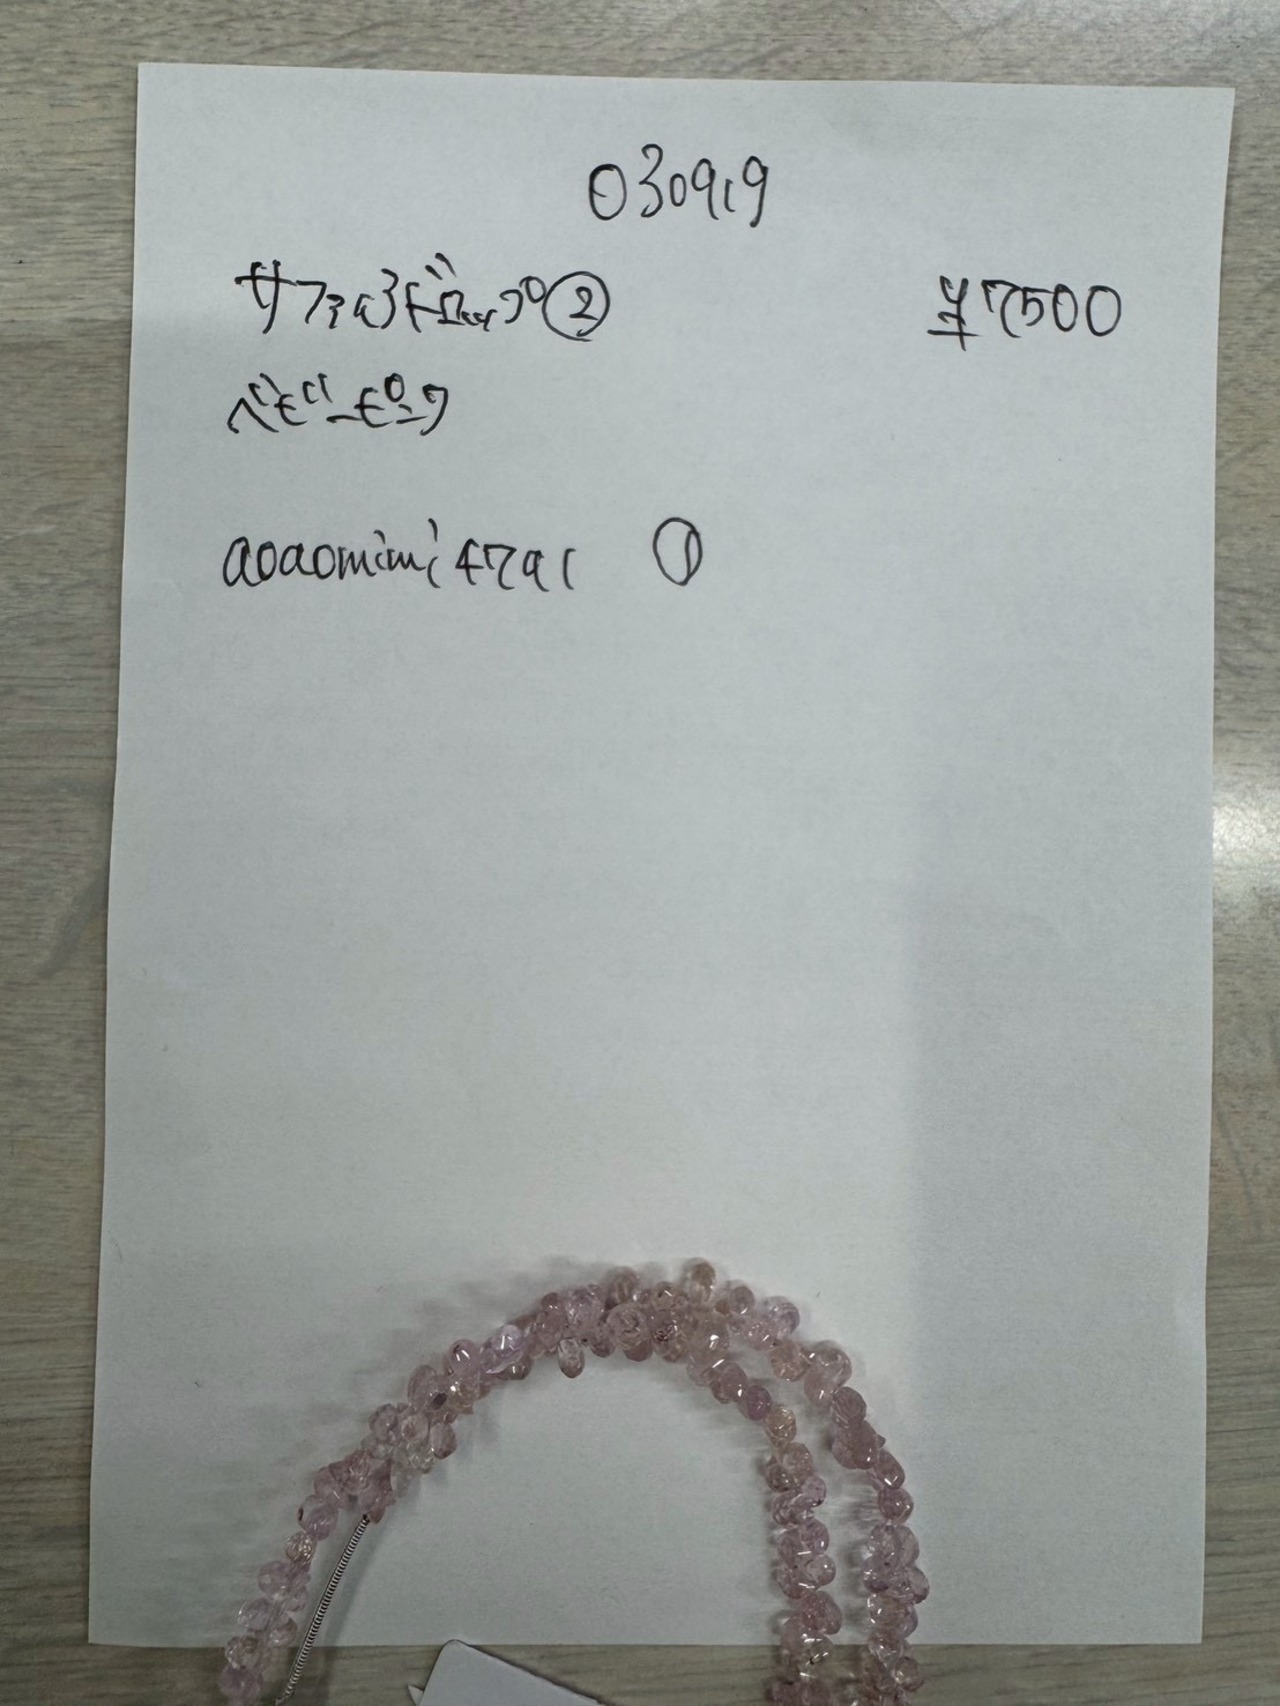 030919
サファイヤドロップ② ¥7500
ベビーピンク
aoaomimi4791 ①